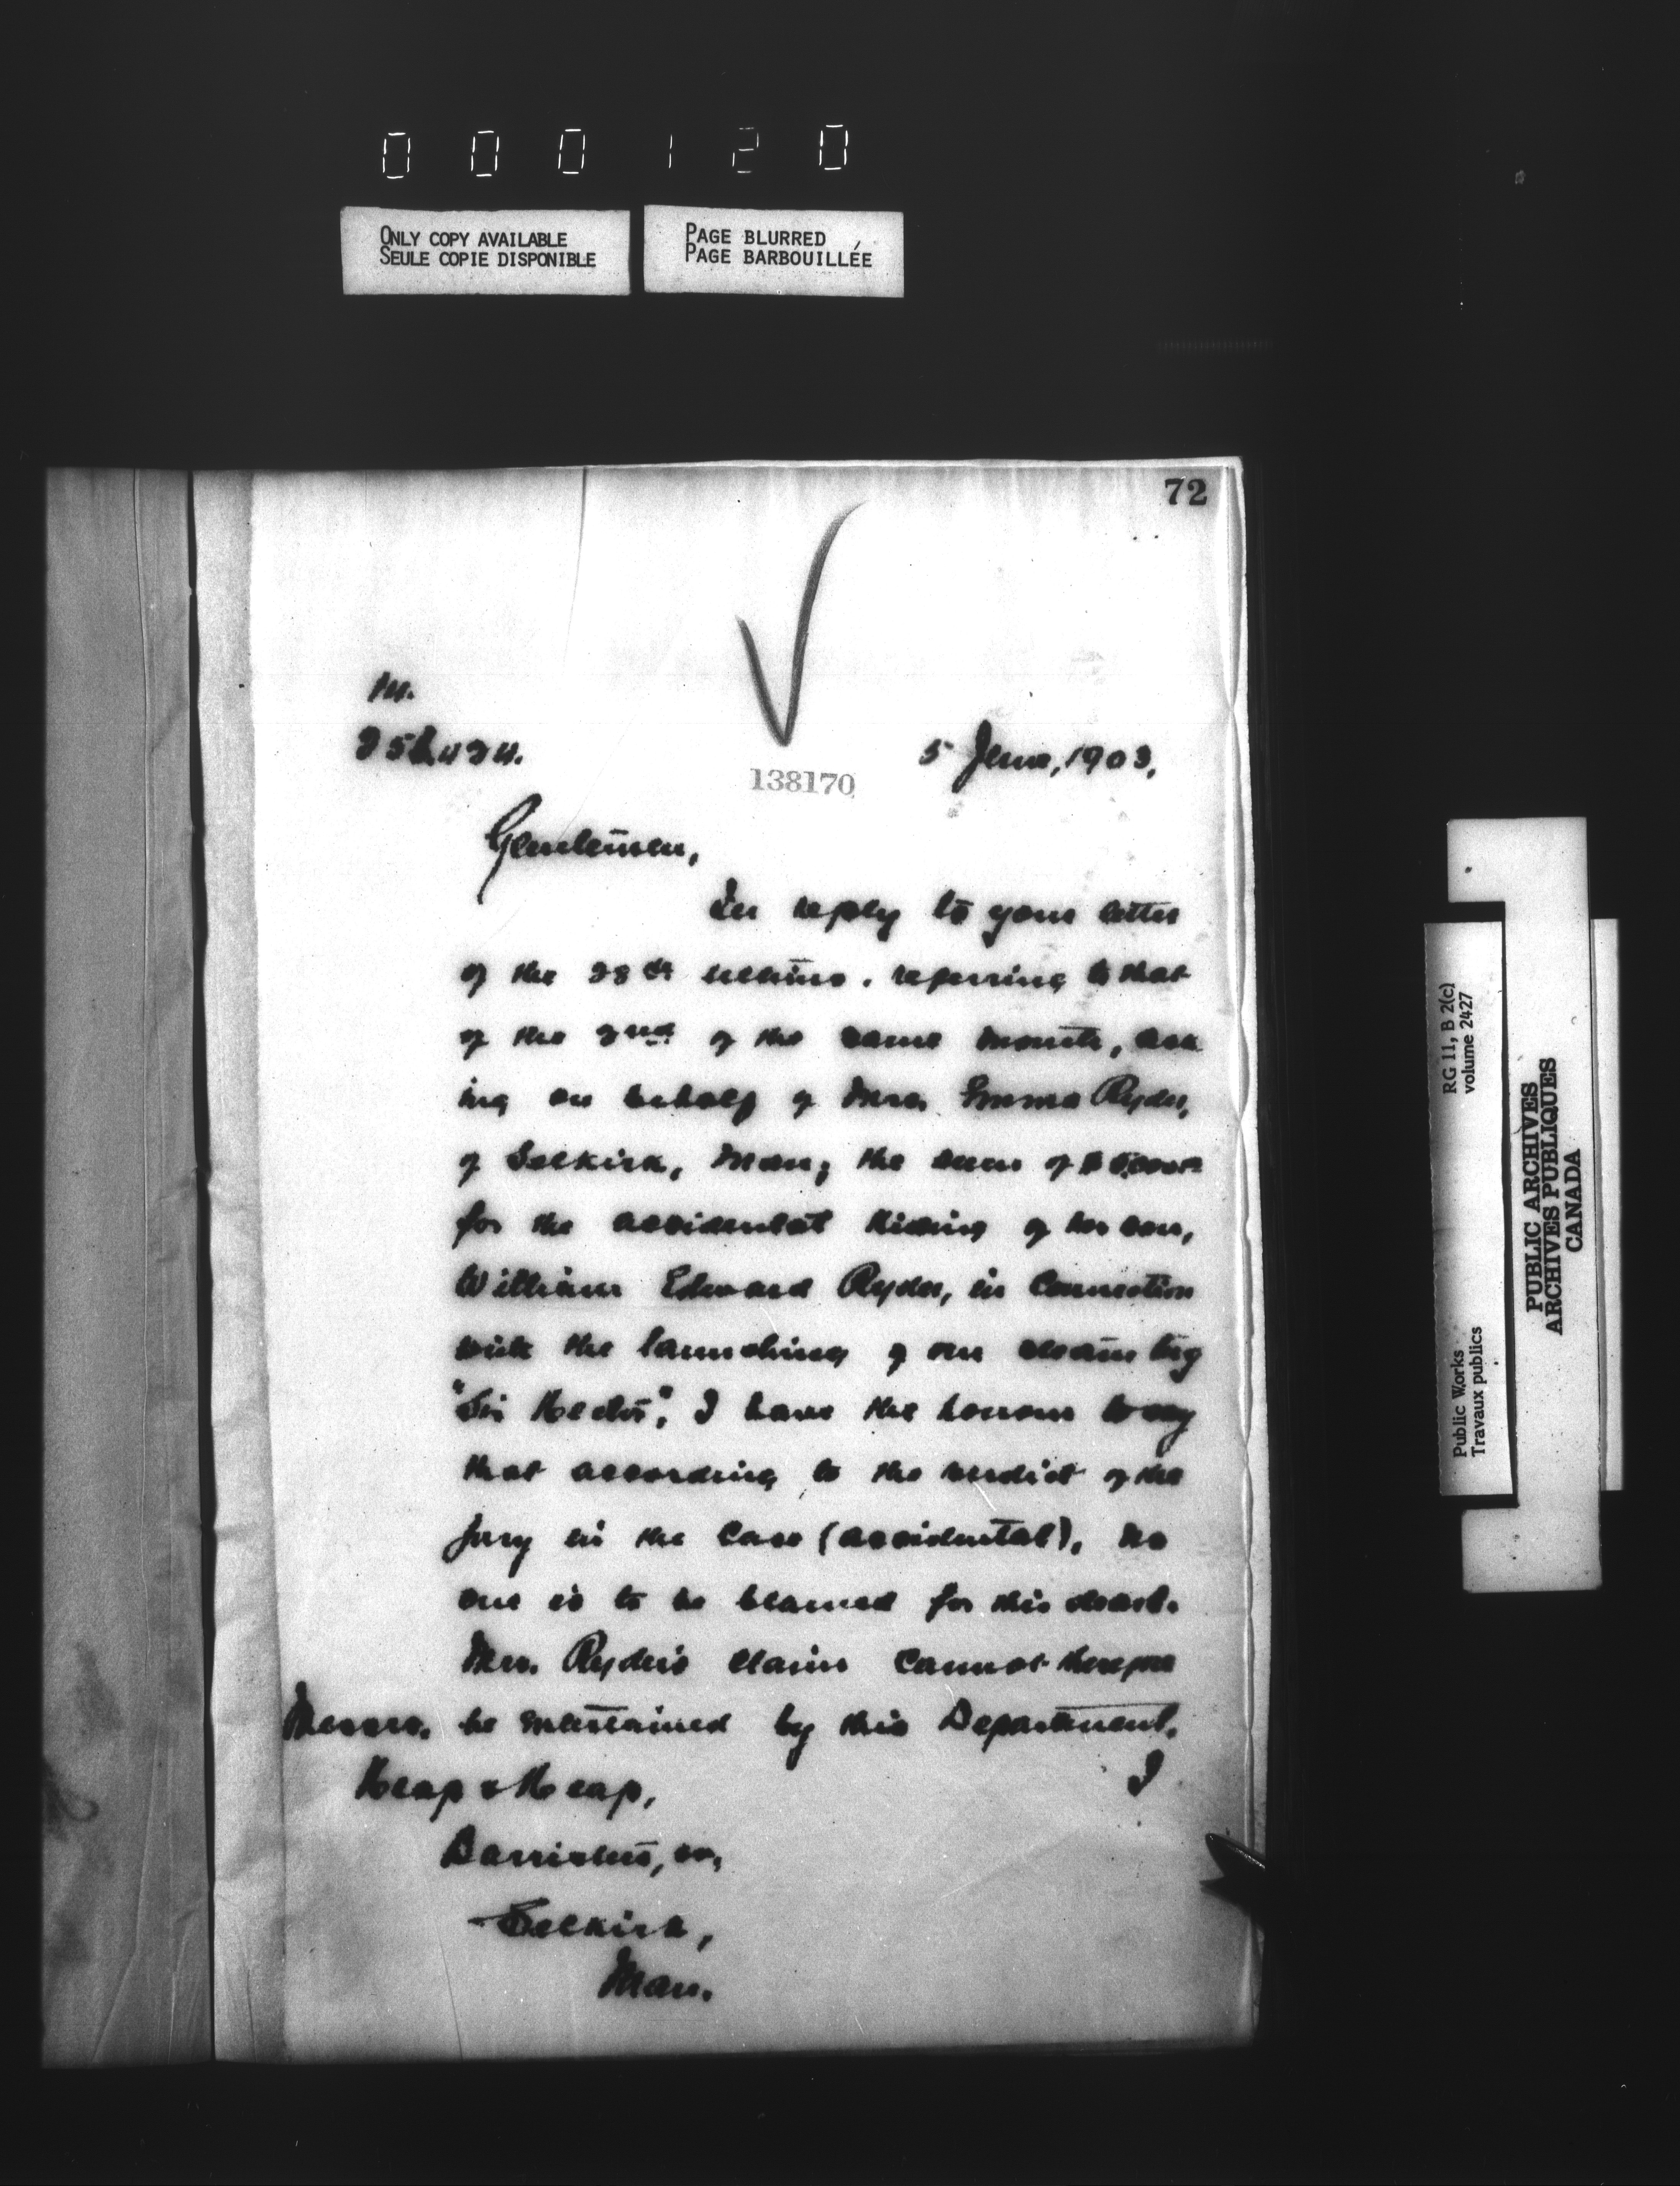 000120
ONLY COPY AVAILABLE
SEULE COPIE DISPONIBLE
PAGE BLURRED
PAGE BARBOUILLÉE
72
5 June, 1903.
138170
Gentlemen,
In reply to your letter
of the 28th ultimo. referring to that
of the 2nd of the same month, ask
ing on behalf of Mrs. Emma Ryder,
of Selkirk, Man, the sum of
for the accidental killing of her son,
William Edward Ryder, in connection
with the launching of our steam tug
"Sir Hector", I have the honour to say
that according to the verdict of the
jury in the case (accidental), no
one is to be blamed for this death.
Mrs. Ryder's claim cannot therefore
be entertained by this Department.
I
Messrs.
Heap & Heap,
Barristers, &c,
Selkirk,
Man.
RG 11, B 2(c)
volume 2427
Public Works
Travaux publics
PUBLIC ARCHIVES
ARCHIVES PUBLIQUES
CANADA